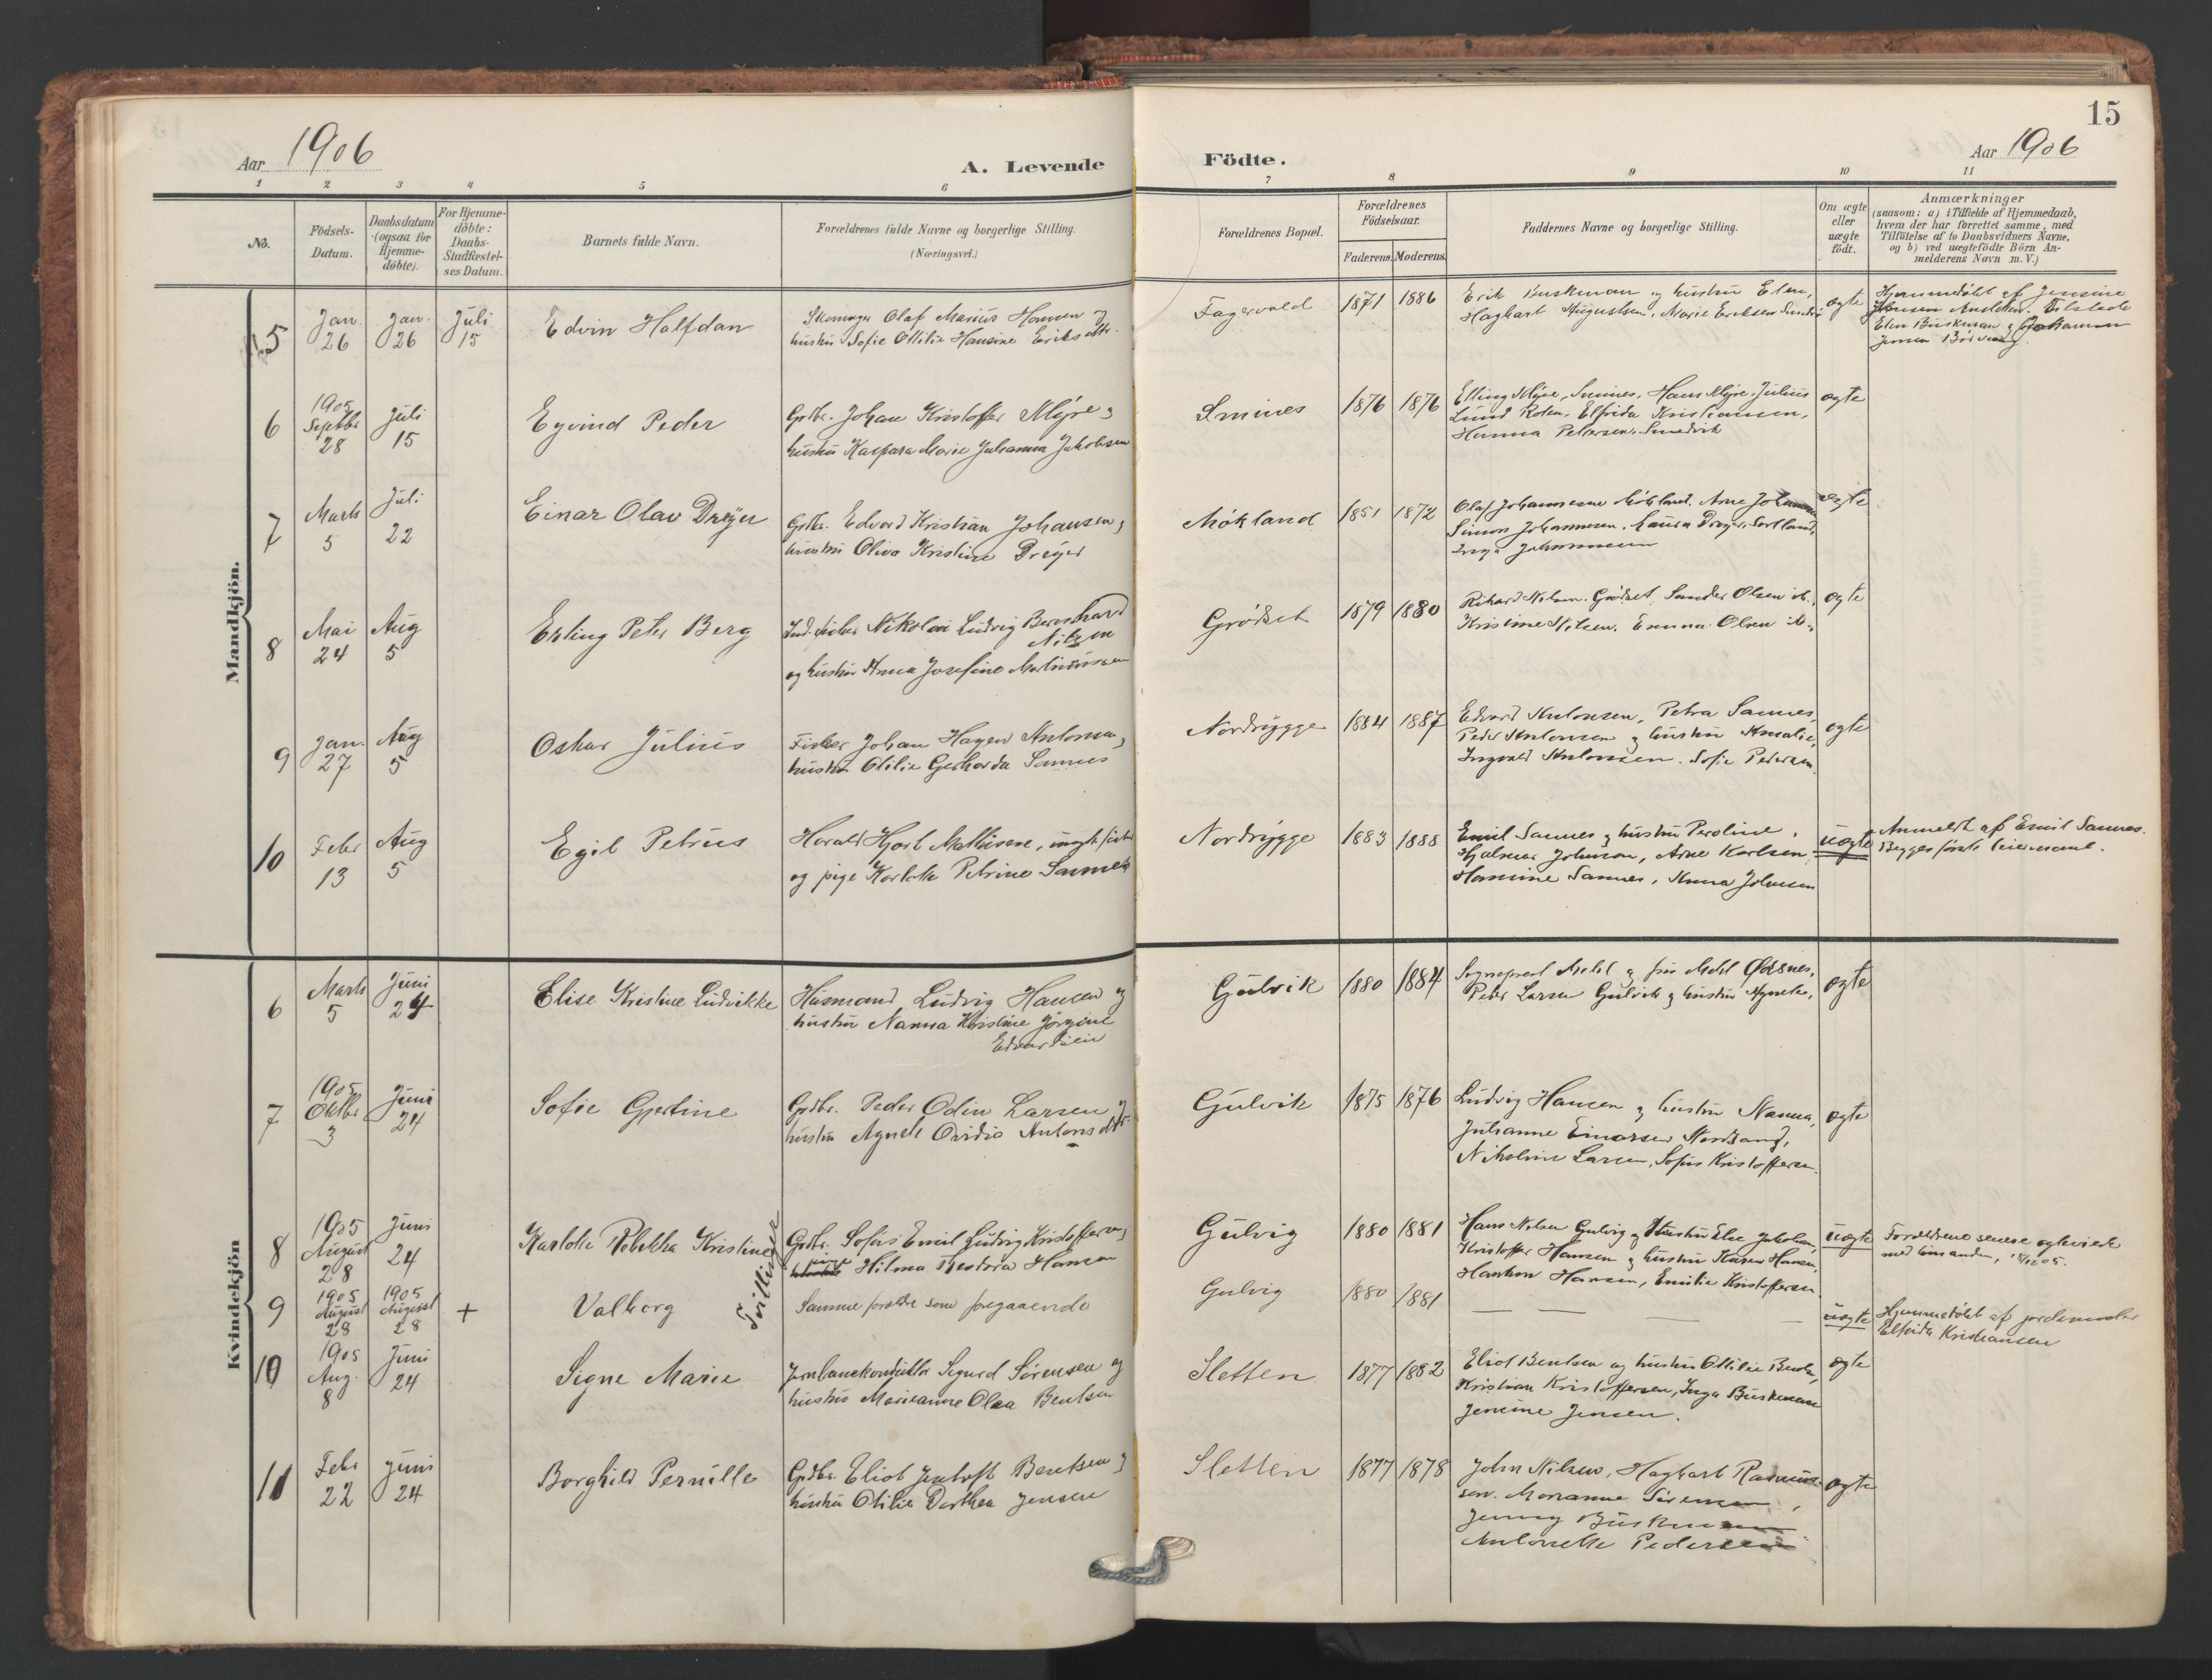 15
Aar 1906
A. Levende
Födte.
Aar 1906
1 2 3 4 5 6 7 8 9 10 11
No.
Födsels-
Datum.
Daabsdatum
(ogsaa for
Hjemme-
döbte).
For Hjemme-
döbte:
Daabs-
Stadfæstel-
ses Datum.
Barnets fulde Navn.
Forældrenes fulde Navne og borgerlige Stilling.
(Næringsvei.)
Forældrenes Bopæl.
Forældrenes
Födselsaar.
Faderens. Moderens.
Faddernes Navne og borgerlige Stilling.
Om ægte
eller
uægte
födt.
Anmærkninger
(saasom: a) i Tilfælde af Hjemmedaab,
hvem der har forrettet samme, med
Tilföielse af to Daabsvidners Navne,
og b) ved uægtefödte Börn An-
melderens Navn m. V.)
Mandkjön.
5
Jan.
26
Jan.
26
Juli
15
Edvin Halfdan
Skomager Olaf Marius Hansen og
hustru Sofie Ottilie Hansine Eriksdtr.
Fagervold
1871 1886
Erik Buskman og hustru Elen,
Haghart Augustsen, Marie Eriksen
ægte
Hjemmedöbt af Jensine
Jensen Tilstede
Elen Buskman og Johannes
Jensen
6
1905
Septbr
28
Juli
15
Eyvind Peder
Grdbr. Johan Kristoffer Myre og
hustru Kaspara Marie Julianna Jakobsen
Smines
1876 1876
Elling Myre, Smines, Hans Myre, Julius
Lund Roten, Elfrida Kristiansen,
Hanna Pettersen, Smedvik
ægte
7
Marts
5
Juli
22
Einar Olav Dreyer
Grdbr. Edvard Kristian Johansen og
hustru Oliva Kristine Dreyer
Mökland
1851 1872
Olaf Johannesen Mökland, Arne Johansen
Simon Johannesen, Laura Dreyer, Sortland,
Inga Johannesen
ægte
8
Mai
24
Aug
5
Erling Peter Berg
Ind. fisker Nikolai Ludvig Bernhard
Nilsen
og hustru Anna Josefine Martinussen
Grödset
1879 1880
Rikard Nilsen, Grödset, Sander Olsen ib.,
Kristine Nilsen, Emma Olsen ib.
ægte
9
Jan.
27
Aug
5
Oskar Julius
Fisker Johan Hagen Antonsen og
hustru Otilie Gerharda Sannes
Nordrygge
1884 1887
Edvard Antonsen, Petra Sannes,
Peder Antonsen og hustru Amalie,
Ingvald Antonsen, Sofie Pedersen
ægte
10
Febr
13
Aug
5
Egil Petrus
Harald Hjort Mathisen, ungk. fisker
og pige Karlotte Petrine Sannes
Nordrygge
1883 1888
Emil Sannes og hustru Peroline,
Hjalmar Johnson, Arne Karlsen,
Hansine Sannes, Anna Johnsen
uægte
Anmeldt af Emil Sannes.
Begges förste leiermaal.
Kvindekjön
6
Marts
5
Juni
24
Elise Kristine Ludvikke
Husmand Ludvig Hansen og
hustru Nanna Kristine Jörgine
Edvardsen
Gulvik
1880 1884
Sogneprest og fru Öksnes,
Peder Larsen Gulvik og hustru Agnete,
ægte
7
1905
Oktbr
3
Juni
24
Sofie Gjertine
Grdbr. Peder Odin Larsen og
hustru Agnete Ovidia Antonsdtr.
Gulvik
1875 1876
Ludvig Hansen og hustru Nanna,
Julianne Einarsen Nordsand,
Nikoline Larsen, Sofus Kristoffersen.
ægte
8
1905
August
28
Juni
24
Karlotte Rebekka Kristine
Tvillinger
Grdbr. Sofus Emil Ludvig Kristoffersen og
pige
hustru Hilma Theodora Hansen
Gulvig
1880 1881
Hans Nilsen Gulvig og hustru Else Jakobine,
Kristoffer Hansen og hustru Karen Hansen,
Haakon Hansen, Emilie Kristoffersen.
uægte
Forældrene senere ægteviede
med hinanden,
9
1905
August
28
1905
August
28
+
Valborg
Samme forældre som foregaaende
Gulvig
1880 1881
— —
uægte
Hjemmedöbt af jordemoder
Elfrida Kristiansen
10
1905
Aug.
8
Juni
24
Signe Marie
Jernbanekonduktör Sigurd Sörensen og
hustru Marieanne Olea Bentsen
Sletten
1877 1882
Eliot Bentsen og hustru Ottilie
Kristian Kristoffersen, Inga Buskman
Jensine Jensen.
ægte
11
Febr
22
Juni
24
Borghild Pernille
Grdbr. Eliot Jentoft Bentsen og
hustru Otilie Dorthea Jensen
Sletten
1877 1878
John Nilsen, Haghart Rasmus-
sen. Marianne Sörensen,
Jenny Buskman
Antonette Pedersen
ægte